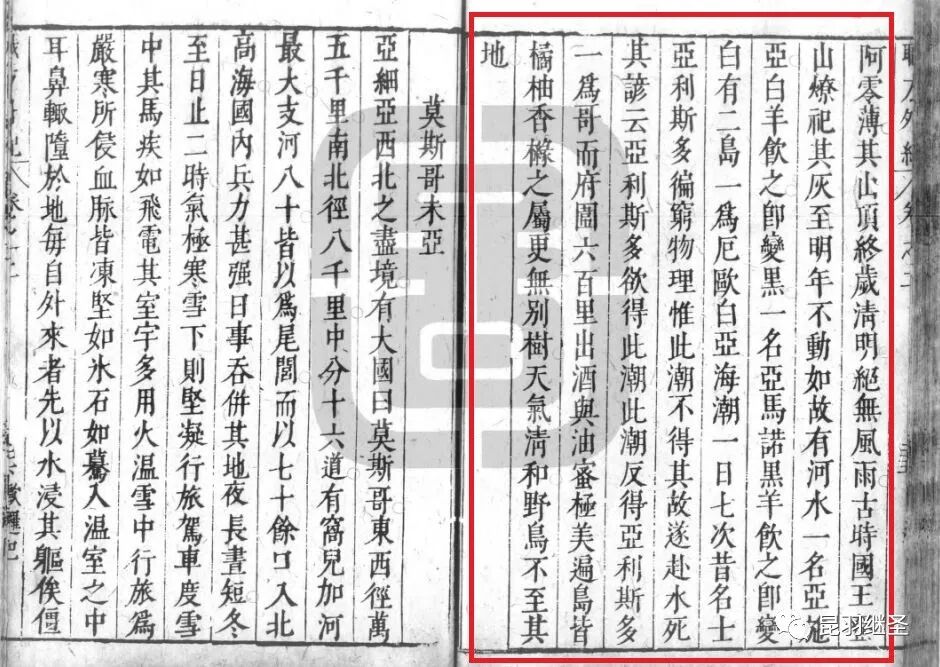 職方外紀 卷之二
阿零薄其山頂終歲淸明絕無風雨古時國王
山燎祀其灰至明年不動如故有河水一名亞施
亞白羊飲之卽變黑一名亞馬諾黑羊飲之卽變
白有二島一爲厄歐白亞海潮一日七次昔名士
亞利斯多徧窮物理惟此潮不得其故遂赴水死
其諺云亞利斯多欲得此潮此潮反得亞利斯多
一爲哥而府圍六百里出酒與油蜜極美遍島皆
橘柚香櫞之屬更無别樹天氣淸和野鳥不至其
地
莫斯哥未亞
亞細亞西北之盡境有大國曰莫斯哥東西徑萬
五千里南北徑八千里中分十六道有窩兒加河
最大支河八十皆以爲尾閭而以七十餘口入北
高海國內兵力甚强日事吞併其地夜長晝短冬
至日止二時氣極寒雪下則堅凝行旅駕車度雪
中其馬疾如飛電其室宇多用火温雪中行旅爲
嚴寒所侵血脉皆凍堅如氷石如驀入温室之中
耳鼻輙墮於地毎自外來者先以水浸其軀俟僵
昆羽继圣